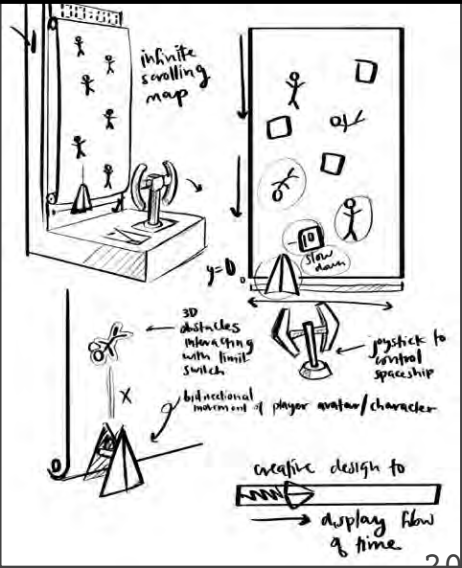 infinite
scrolling
map
- 10
slow
down
y=0
3D
obstacles
interacting
with limit
switch
X
joystick to
control
spaceship
bidirectional
movement of player avatar/character
creative design to
display flow
of time
20